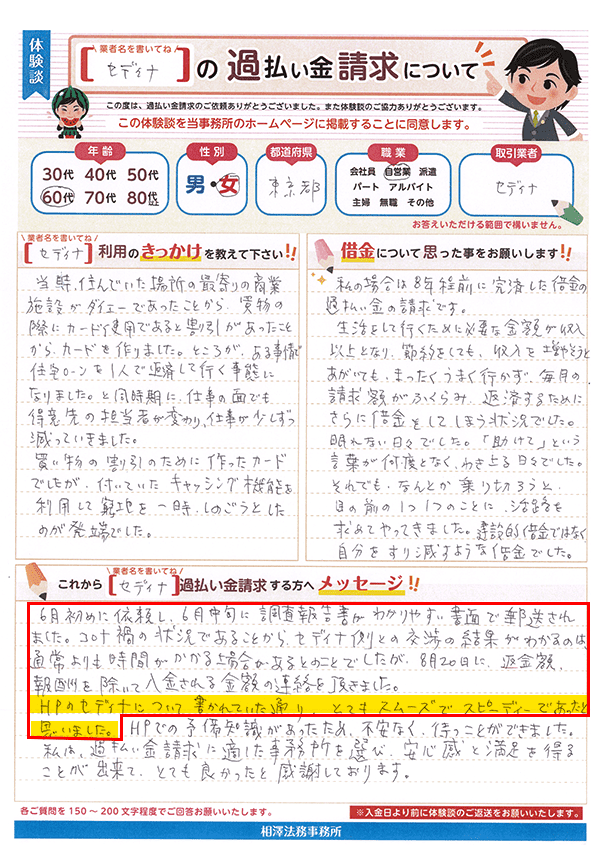 体験談
業者名を書いてね
[セディナ]の過払い金請求について
この度は、過払い金請求のご依頼ありがとうございました。また体験談のご協力ありがとうございます。
この体験談を当事務所のホームページに掲載することに同意します。
年齢
30代 40代 50代
60代 70代 80代
性別
男・女
都道府県
東京都
職業
会社員 自営業 派遣
パート アルバイト
主婦 無職 その他
取引業者
セディナ
お答えいただける範囲で構いません。
業者名を書いてね
[セディナ]利用のきっかけを教えて下さい!!
当時、住んでいた場所の最寄りの商業
施設がダイエーであったことから、買物の
際にカード使用であると割引があったこと
から、カードを作りました。ところが、ある事情で
住宅ローンを1人で返済して行く事態に
なりました。と同時期に、仕事の面でも
得意先の担当者が変わり、仕事が少しずつ
減っていきました。
買い物の割引のために作ったカード
でしたが、付いていたキャッシング機能を
利用して窮地を一時、しのごうとした
のが発端でした。
借金について思った事をお願いします!!
私の場合は8年程前に完済した借金の
過払い金の請求です。
生活をして行くために必要な金額が収入
以上となり、節約をしても、収入を増やそうと
あがいても、まったくうまく行かず、毎月の
請求額がふくらみ、返済するために
さらに借金をしてしまう状況でした。
眠れない日々でした。「助けて」という
言葉が何度となく、わき上る日々でした。
それでも、なんとか乗り切ろうと、
目の前の1つ1つのことに、活路を
求めてやってきました。建設的借金ではなく
自分をすり減すような借金でした。
業者名を書いてね
これから[セディナ]過払い金請求する方へメッセージ!!
6月初めに依頼し、6月中旬に調査報告書がわかりやすい書面で郵送され
ました。コロナ禍の状況であることから、セディナ側との交渉の結果がわかるのは、
通常よりも時間がかかる場合があるとのことでしたが、8月20日に、返金額、
報酬を除いて入金される金額の連絡を頂きました。
HPのセディナについて書かれていた通り、とてもスムーズでスピーディーであったと
思いました。HPでの予備知識があったため、不安なく、待つことができました。
私は、過払い金請求に適した事務所を選び、安心感と満足を得る
ことが出来て、とても良かったと感謝しております。
各ご質問を150〜200文字程度でご回答お願いいたします。
※入金日より前に体験談のご返送をお願いいたします。
相澤法務事務所